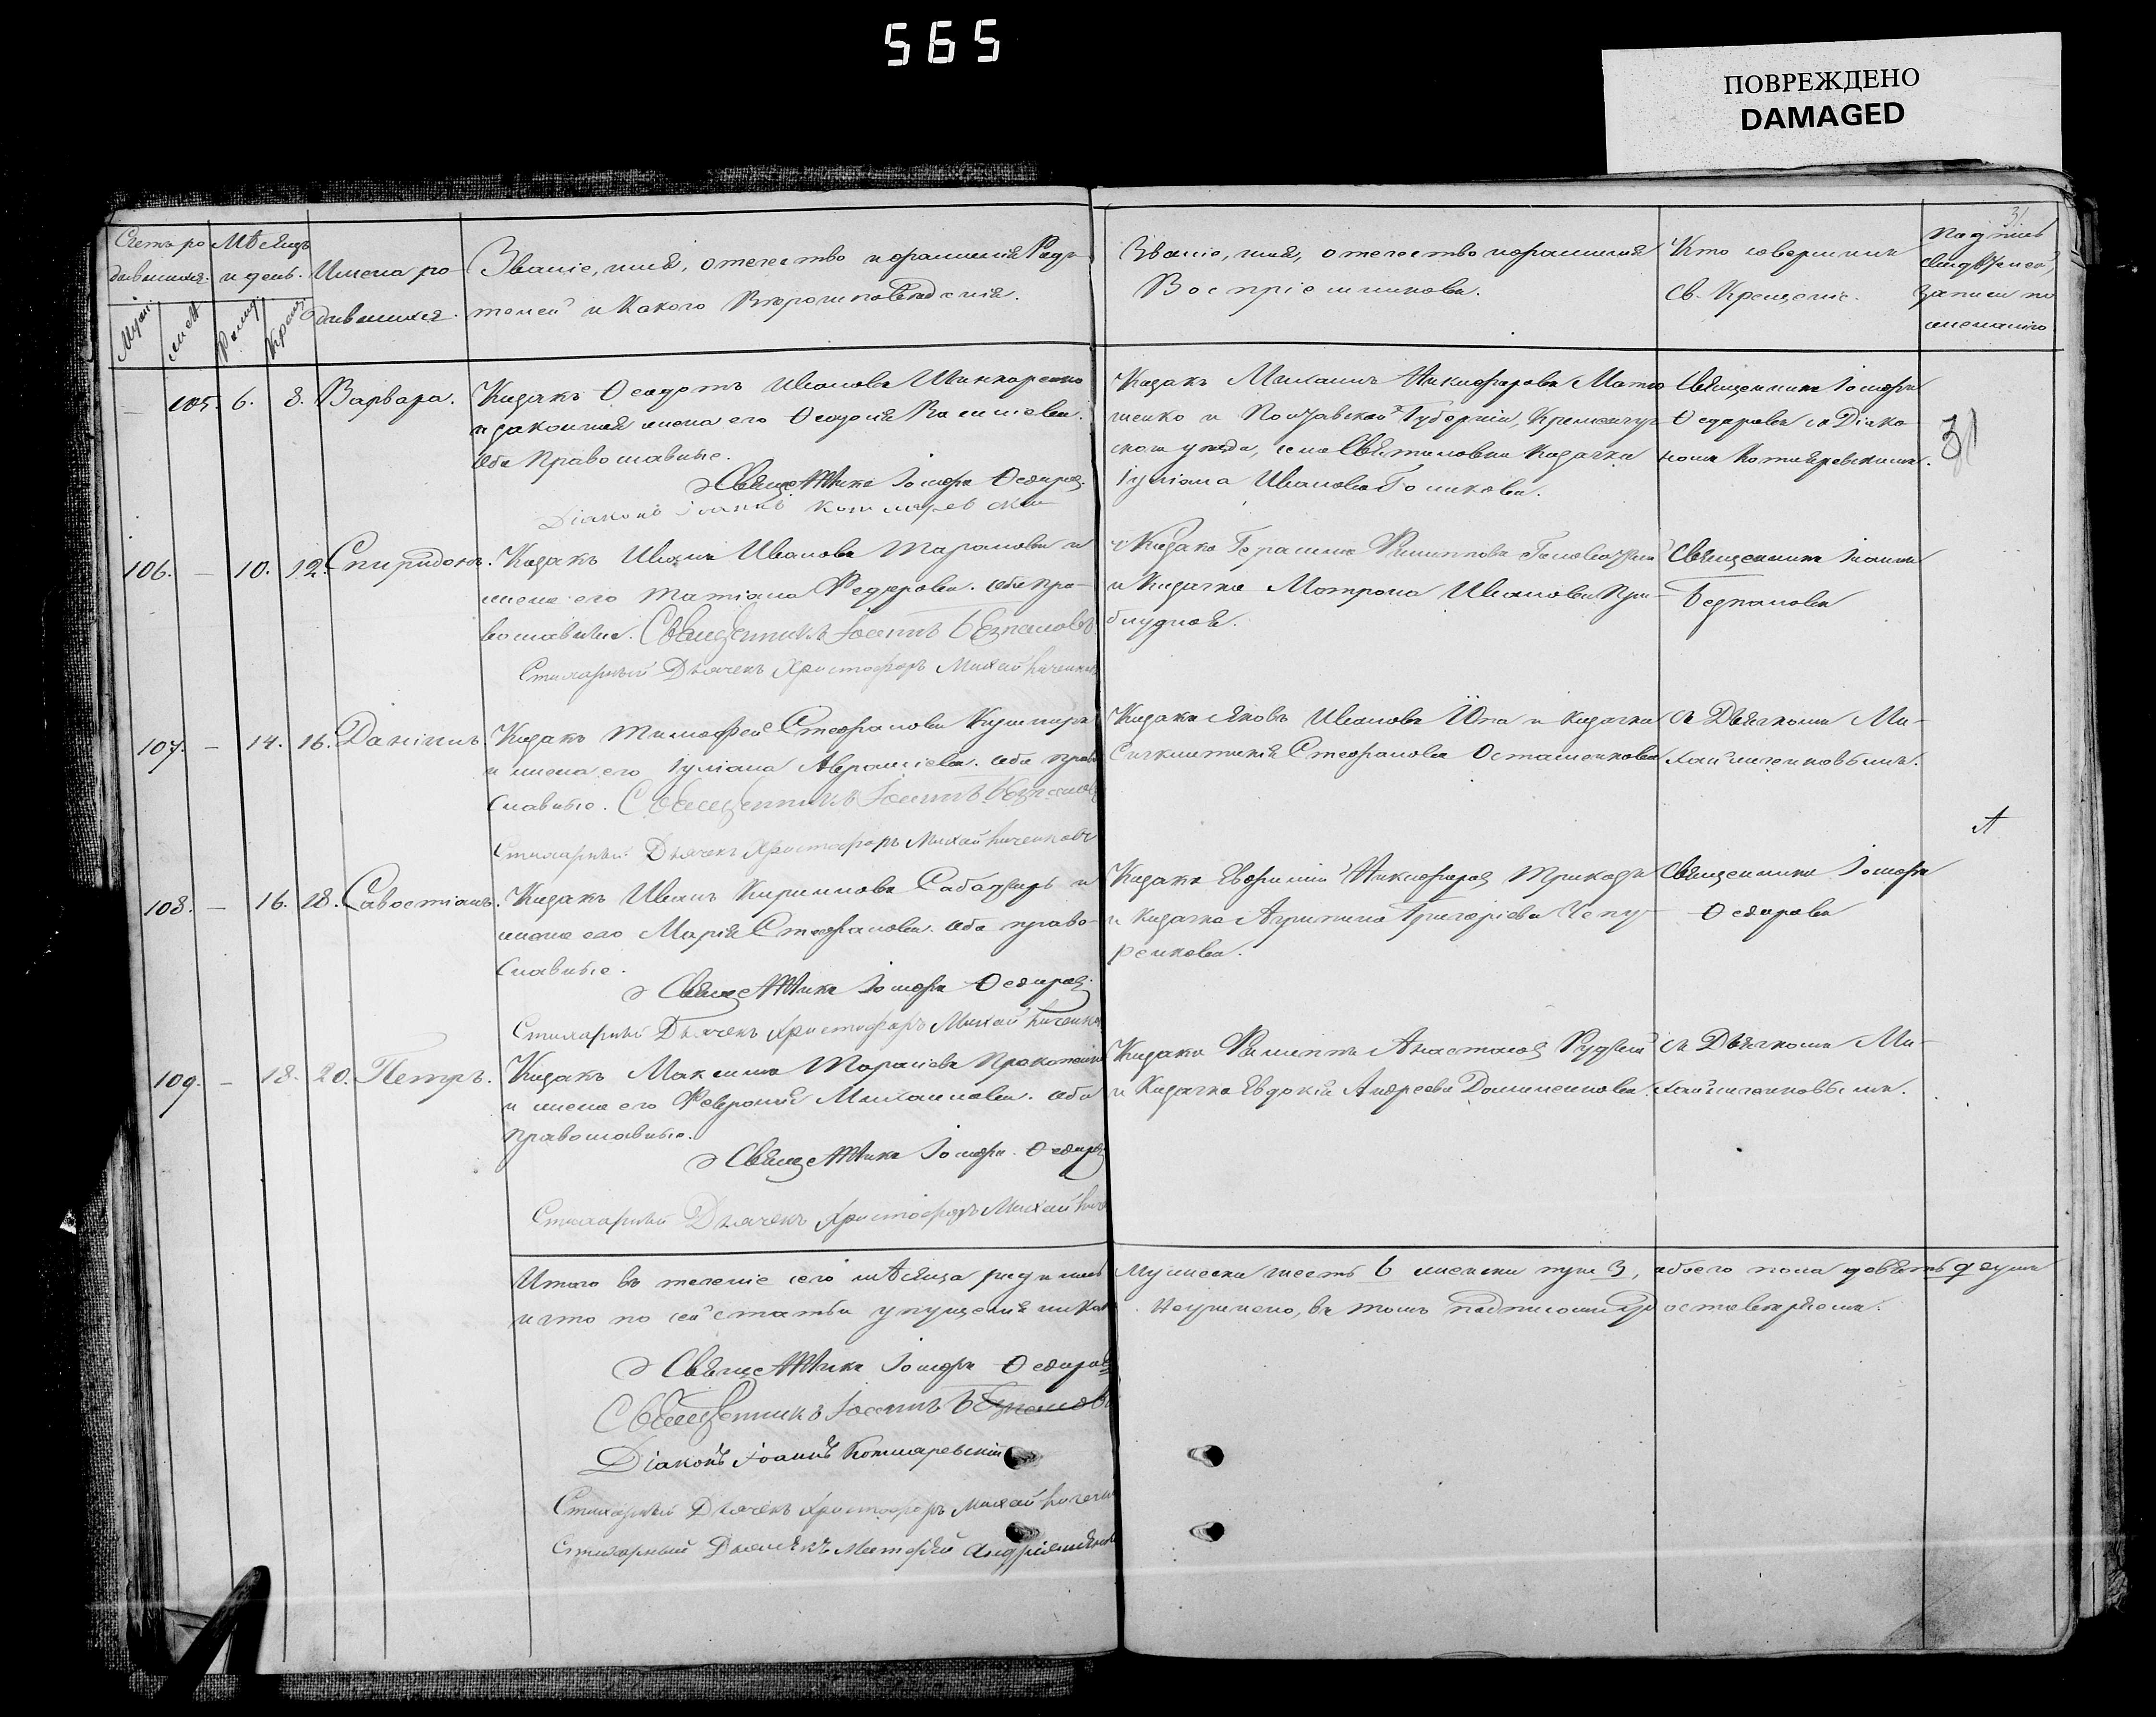 565
ПОВРЕЖДЕНО
DAMAGED
31
Счетъ ро
дившихся.
Муж.
жен.
Мѣсяцъ
и день.
Рожд.
Крещ.
Имена ро-
дившихся.
Званіе, имя, отечество и фамилія Роди-
телей и Какого Вѣроисповѣданія.
Званіе, имя, отечество и фамилия
Воспріемниковъ.
Кто совершилъ
Св. Крещеніе.
31
105. 6. 8. Варвара.
Козакъ Ѳеодотъ Ивановъ
и законная жена его Ѳеодосія
оба Православные.
Священникъ Іосифъ Ѳедоров
Діаконъ Іоаннъ Котляревскій
Козакъ Михаилъ Никифоровъ
шенко и Полтавской Губерніи, Кременчуг-
скаго уѣзда, села Святиловки Козачка
Іуліана Иванова
Священникъ Іосифъ
Ѳедоровъ съ Діако
номъ Котляревскимъ.
106. — 10. 12. Спиридонъ.
Козакъ Иванъ Ивановъ Тарановъ и
жена его Татіана Федорова. оба пра-
вославные. Священникъ Іоаннъ Безпаловъ
Стихарный Дьячекъ Христофоръ Михайличенковъ
Козакъ Герасимъ Филипповъ
и Козачка Матрона Иванова При-
блудная.
Священникъ Іоаннъ
Безпаловъ
107. — 14. 16. Даніилъ.
Козакъ Тимофей Стефановъ Кушниръ
и жена его Іуліана Аврамиева. оба право
славные. Священникъ Іоаннъ Безпалов
Стихарный Дьячекъ Христофоръ Михайличенковъ
Козакъ Яковъ Ивановъ Юла и козачка
Синклитикія Стефанова Осташенкова
съ Дьячкомъ Ми-
хайличенковымъ.
108. — 16. 18. Савостіанъ.
Козакъ Иванъ Кирилловъ Сабадырь и
жена его Марія Стефанова. оба право-
славные.
Священникъ Іосифъ Ѳедоров
Стихарный Дьячекъ Христофоръ Михайличенко
Козакъ Евфимій Никифоров
и козачка Агрипина Григоріева Чепу-
ренкова.
Священникъ Іосифъ
Ѳедоровъ
109. — 18. 20. Петръ.
Козакъ Максимъ Тарасіевъ
и жена его Феронія Михаилова. оба
православные.
Священникъ Іосифъ Ѳедоров
Стихарный Дьячекъ Христофоръ Михайличе
Козакъ Филиппъ Анастасов Рудый
и Козачка Евдокія Андреева
съ Дьячкомъ Ми-
хайличенковымъ.
Итого въ теченіе сего мѣсяца родилось мужеска шесть 6 женска три 3, обоего пола девять 9 душъ
и что по сей статьи упущенія никак. Неучинено, въ томъ подписомъ удостовѣряемъ.
Священникъ Іосифъ Ѳедоров
Священникъ Іоаннъ Безпалов
Діаконъ Іоаннъ Котляревскій
Стихарный Дьячекъ Христофоръ Михайличен
Стихарный Дьячекъ